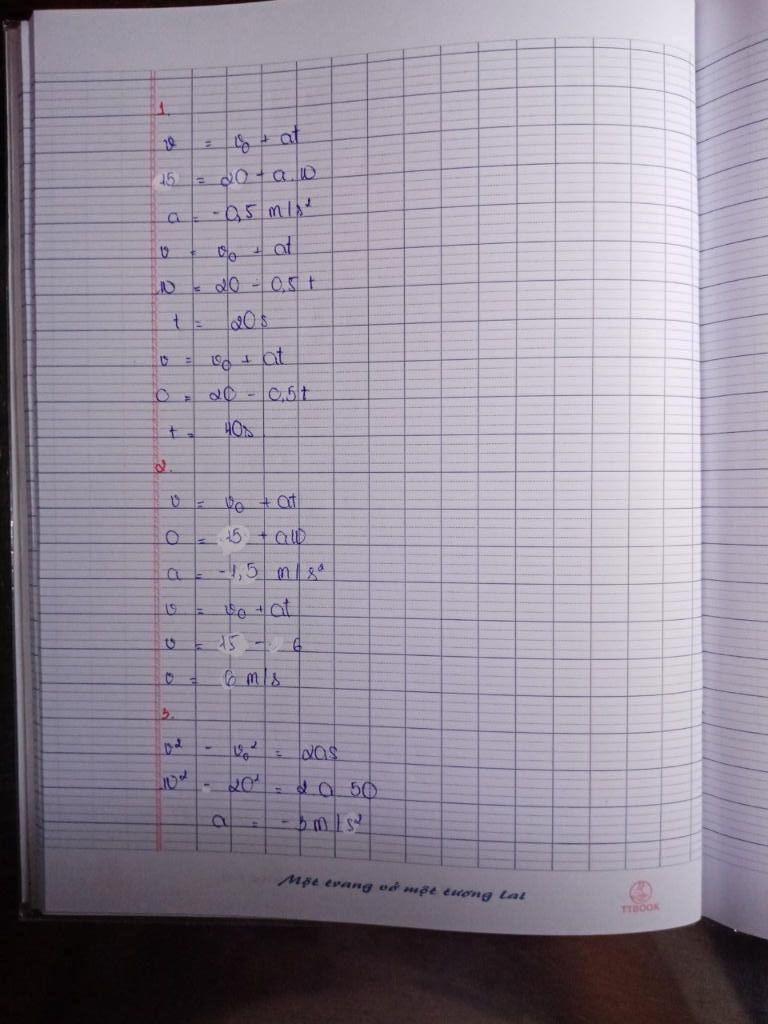 1.
v = v₀ + at
15 = 20 + a.10
a = -0,5 m/s²
v = v₀ + at
10 = 20 - 0,5 t
t = 20s
v = v₀ + at
0 = 20 - 0,5t
t = 40s
2.
v = v₀ + at
0 = 15 + a10
a = -1,5 m/s²
v = v₀ + at
v = 15 - 6
v = 6 m/s
3.
v² - v₀² = 2as
10² - 20² = 2 a 50
a = -3 m/s²
Một trang vở một tương lai
TTBOOK